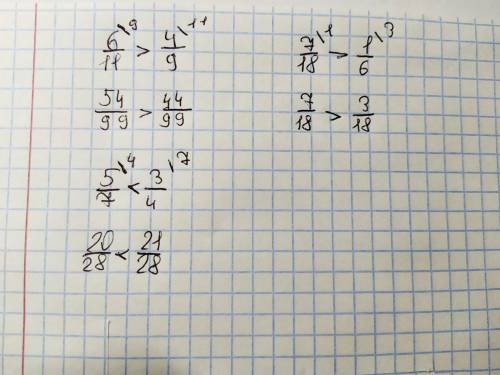 6/11 \9 > 4/9 \11
54/99 > 44/99
5/7 \4 < 3/4 \7
20/28 < 21/28
7/18 \1 > 1/6 \3
7/18 > 3/18